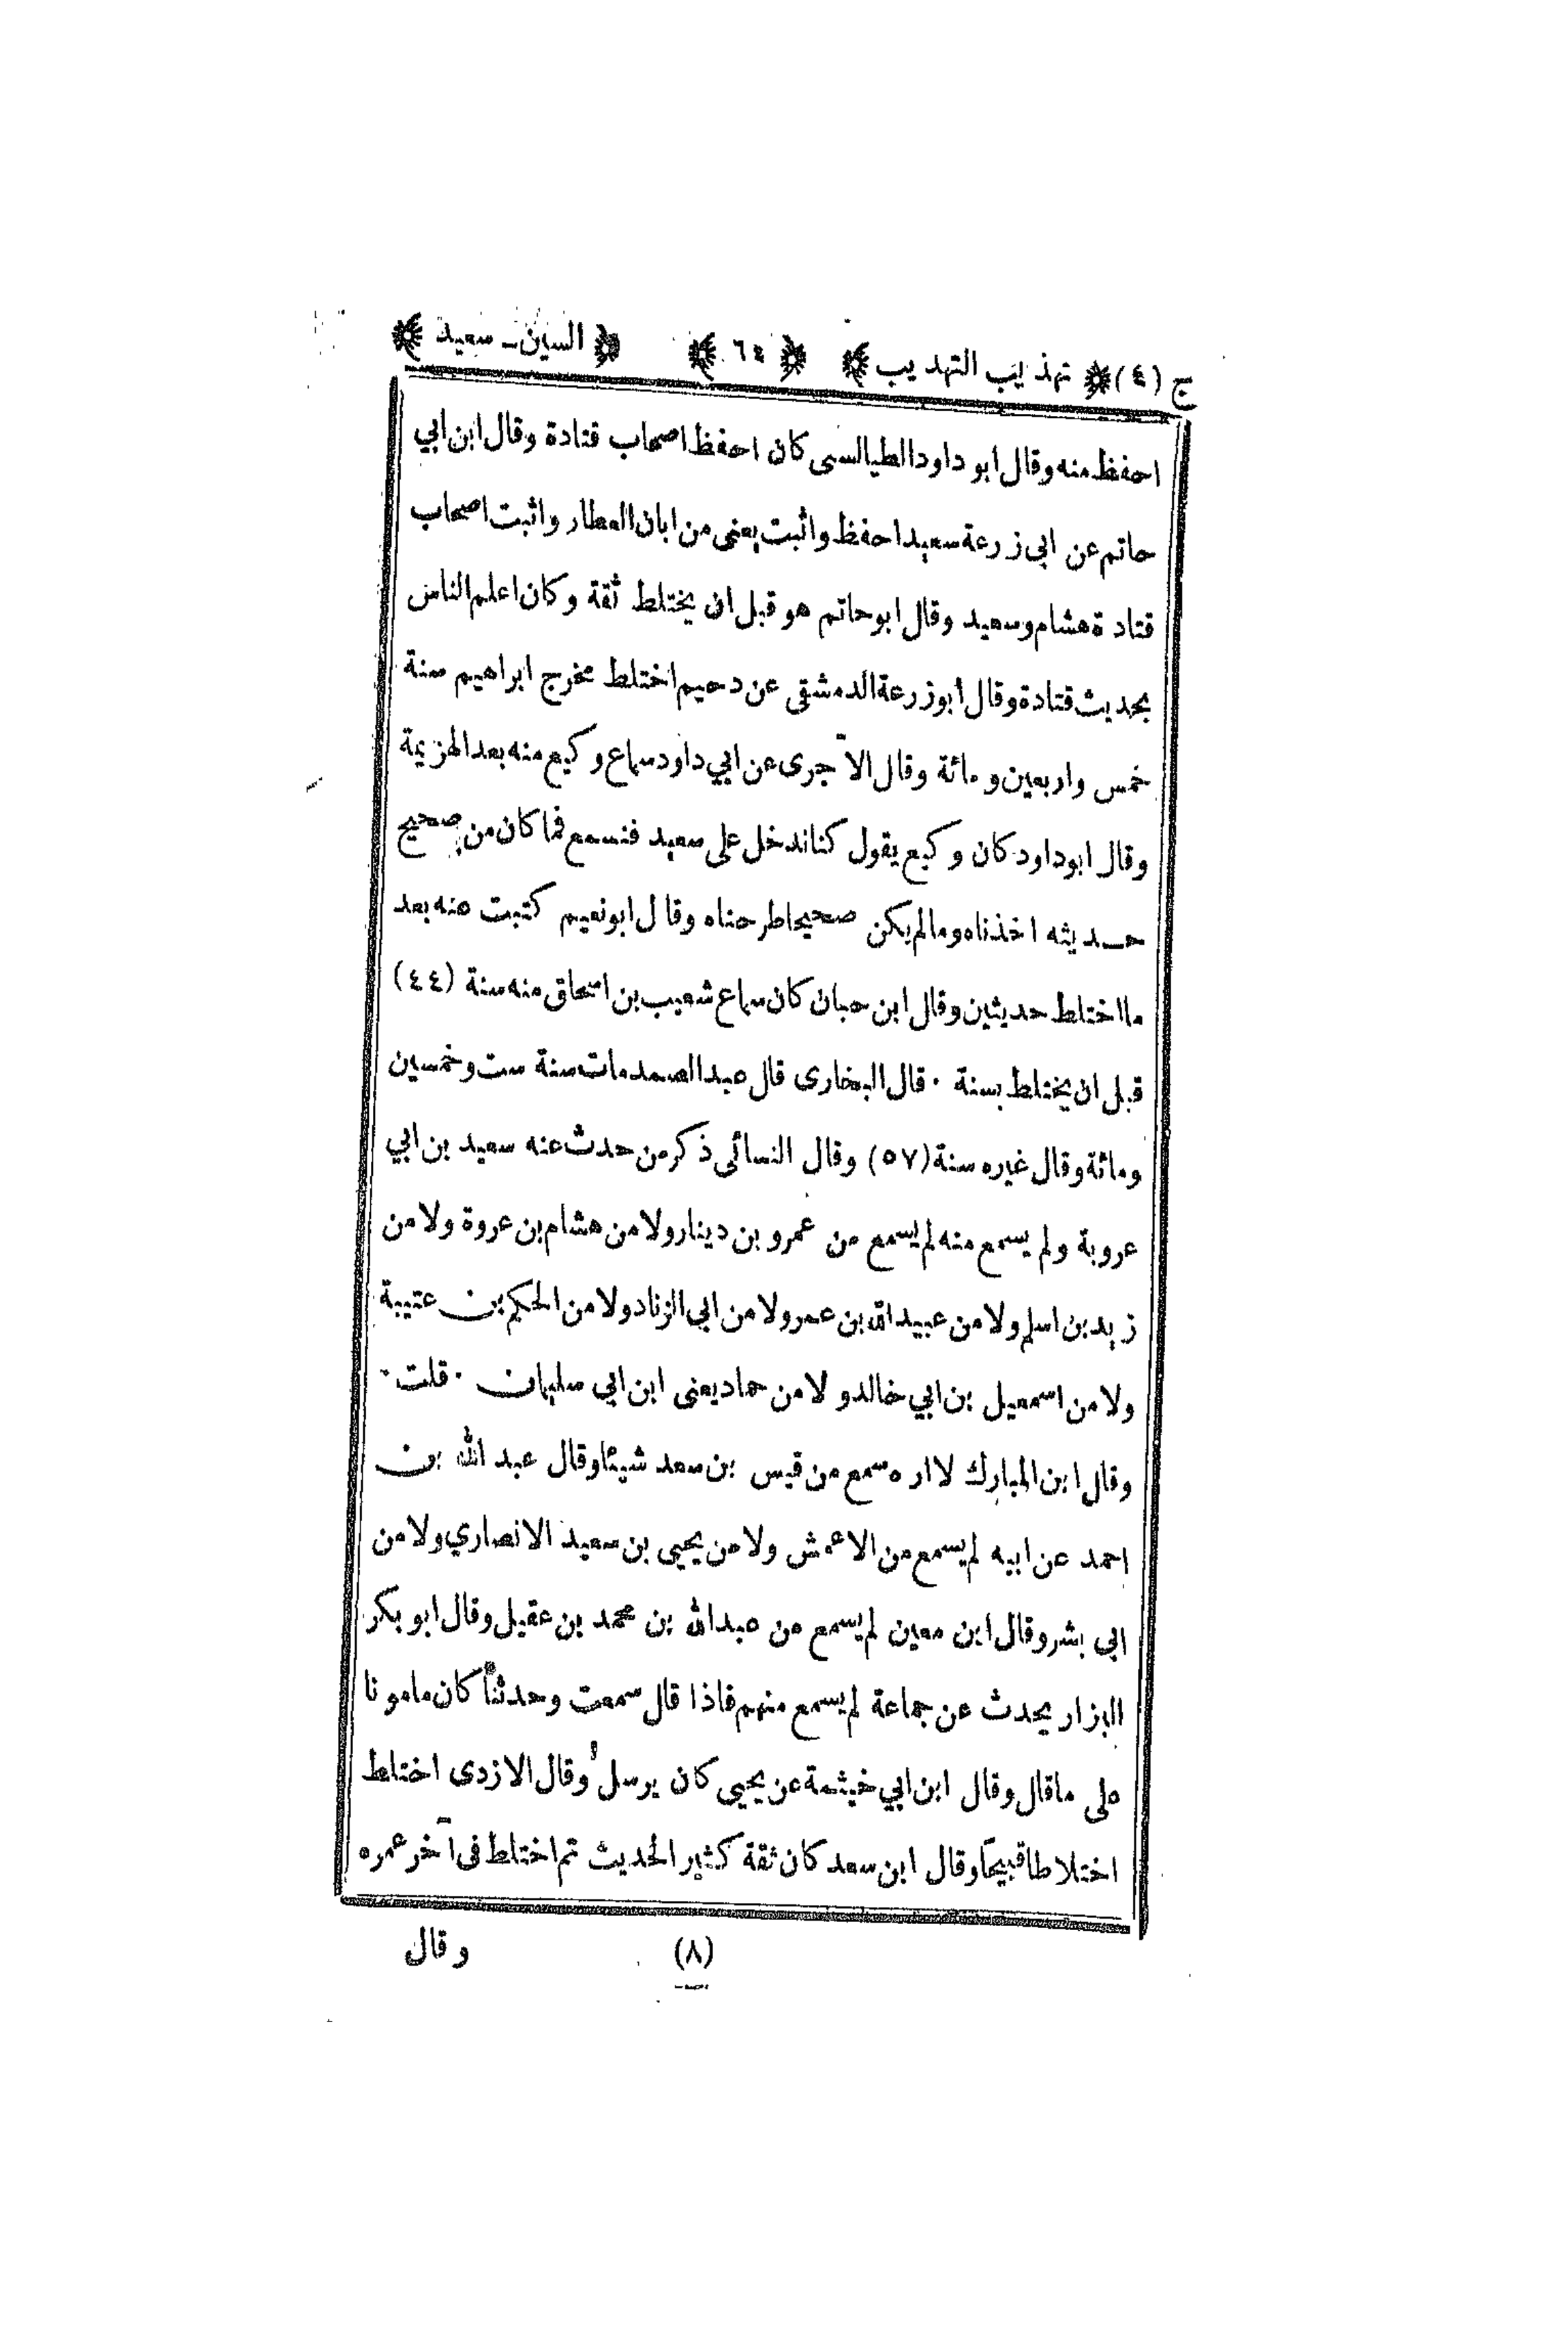 ج (٤) تهذيب التهذيب ٦٤ السين ـ سعيد
احفظ منه وقال ابو داود الطيالسى كان احفظ اصحاب قتادة وقال ابن ابي
حاتم عن ابى زرعة سعيد احفظ واثبت يعنى من ابان العطار واثبت اصحاب
قتادة هشام وسعيد وقال ابو حاتم هو قبل ان يختلط ثقة وكان اعلم الناس
بحديث قتادة وقال أبو زرعة الدمشقى عن دحيم اختلط مخرج ابراهيم سنة
خمس واربعين ومائة وقال الآجرى عن ابي داود سماع وكيع منه بعد الهزيمة
وقال ابو داود كان وكيع يقول كنا ندخل على سعيد فنسمع فما كان من صحيح
حديثه اخذناه وما لم يكن صحيحا طرحناه وقال ابو نعيم كتبت عنه بعد
ما اختلط حديثين وقال ابن حبان كان سماع شعيب بن اسحاق منه سنة (٤٤)
قبل ان يختلط بسنة . قال البخارى قال عبد الصمد مات سنة ست وخمسين
ومائة وقال غيره سنة (٥٧) وقال النسائى ذكر من حدث عنه سعيد بن ابي
عروبة ولم يسمع منه لم يسمع من عمرو بن دينار ولا من هشام بن عروة ولا من
زيد بن اسلم ولا من عبيد الله بن عمر ولا من ابي الزناد ولا من الحكم بن عتيبة
ولا من اسمعيل بن ابي خالد ولا من حماد يعنى ابن ابي سليمان . قلت .
وقال ابن المبارك لا اره سمع من قيس بن سعد شيئا وقال عبد الله بن
احمد عن ابيه لم يسمع من الاعمش ولا من يحيى بن سعيد الانصاري ولا من
ابي بشر وقال ابن معين لم يسمع من عبد الله بن محمد بن عقيل وقال ابو بكر
البزار يحدث عن جماعة لم يسمع منهم فاذا قال سمعت وحدثنا كان مامونا
على ما قال وقال ابن ابي خيثمة عن يحيى كان يرسل وقال الازدى اختلط
اختلاطا قبيحا وقال ابن سعد كان ثقة كثير الحديث ثم اختلط فى آخر عمره
(٨) وقال